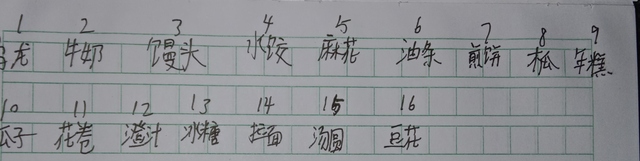 1 2 3 4 5 6 7 8 9
龙 牛奶 馒头 水饺 麻花 油条 煎饼 木瓜 年糕
10 11 12 13 14 15 16
瓜子 花卷 渣汁 冰糖 拉面 汤圆 豆花